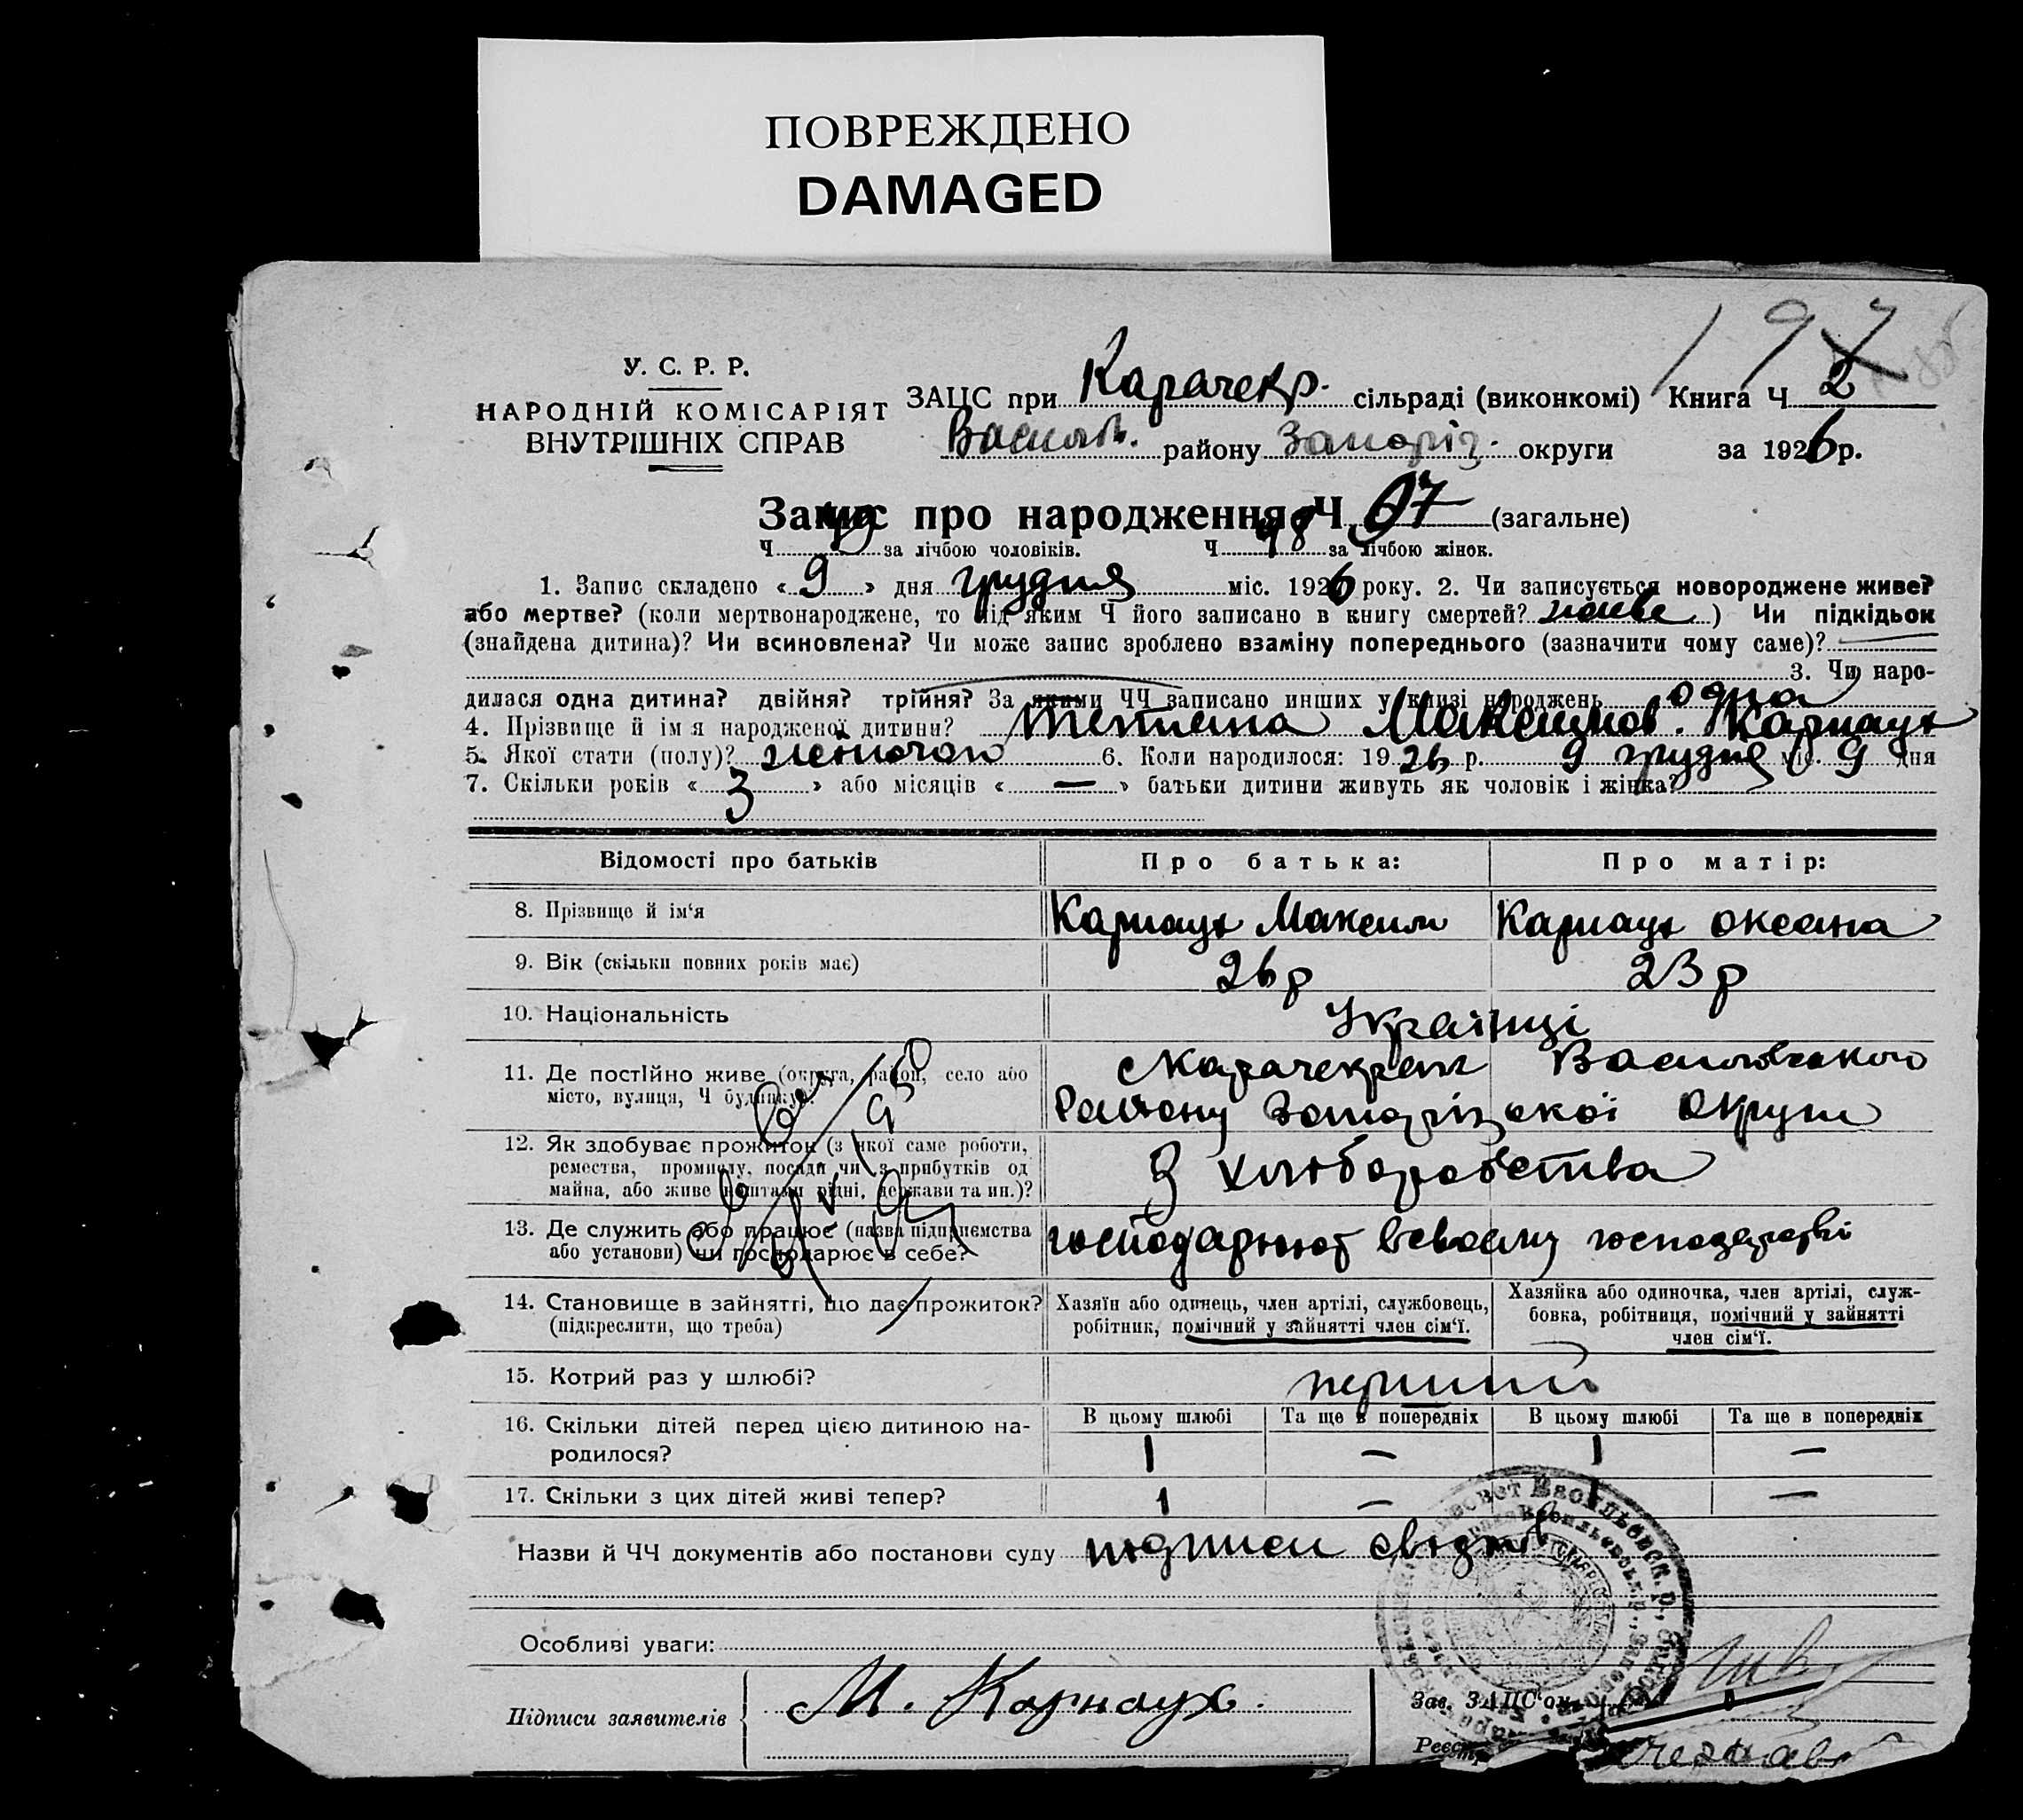 ПОВРЕЖДЕНО
DAMAGED
197
У. С. Р. Р.
НАРОДНІЙ КОМІСАРІЯТ
ВНУТРІШНІХ СПРАВ
ЗАЦС при Карачекр. сільраді (виконкомі) Книга Ч 2
Васил. району Запоріз. округи за 1926 р.
Запис про народження Ч 97 (загальне)
Ч 49 за лічбою чоловіків. Ч 48 за лічбою жінок.
1. Запис складено « 9 » дня грудня міс. 1926 року. 2. Чи записується новороджене живе?
або мертве? (коли мертвонароджене, то під яким Ч його записано в книгу смертей? живе ) Чи підкідьок
(знайдена дитина)? Чи всиновлена? Чи може запис зроблено взаміну попереднього (зазначити чому саме)?
3. Чи наро-
дилася одна дитина? двійня? трійня? За якими ЧЧ записано инших у книзі народжень одна
4. Прізвище й ім я народженої дитини? Тетяна Максимов. Карнаух
5. Якої стати (полу)? жіночою 6. Коли народилося: 1926 р. 9 грудня міс. 9 дня
7. Скільки років « 3 » або місяців « — » батьки дитини живуть як чоловік і жінка?
Відомості про батьків Про батька: Про матір:
8. Прізвище й ім'я Карнаух Максим Карнаух Оксана
9. Вік (скільки повних років має) 26 р 23 р
10. Національність Українці
11. Де постійно живе (округа, район, село або місто, вулиця, Ч будинку)? с Карачекрак Василівського
Району Запорізської Округи
12. Як здобуває прожиток (з якої саме роботи,
ремества, промислу, посади чи з прибутків од
майна, або живе коштами рідні, держави та ин.)? З хліборобства
13. Де служить або працює (назва підприємства
або установи) чи господарює в себе? господарюют всвоему господарстві
14. Становище в зайнятті, що дає прожиток?
(підкреслити, що треба)
Хазяїн або одинець, член артілі, службовець,
робітник, помічний у зайнятті член сім'ї.
Хазяйка або одиночка, член артілі, служ-
бовка, робітниця, помічний у зайнятті
член сім'ї.
15. Котрий раз у шлюбі? перший
16. Скільки дітей перед цією дитиною на-
родилося?
В цьому шлюбі Та ще в попередніх В цьому шлюбі Та ще в попередніх
1 — 1 —
17. Скільки з цих дітей живі тепер? 1 — 1 —
Назви й ЧЧ документів або постанови суду підписи свідків
Особливі уваги:
Підписи заявителів М. Карнаух.
Зав. ЗАЦС'ом
Реєстр